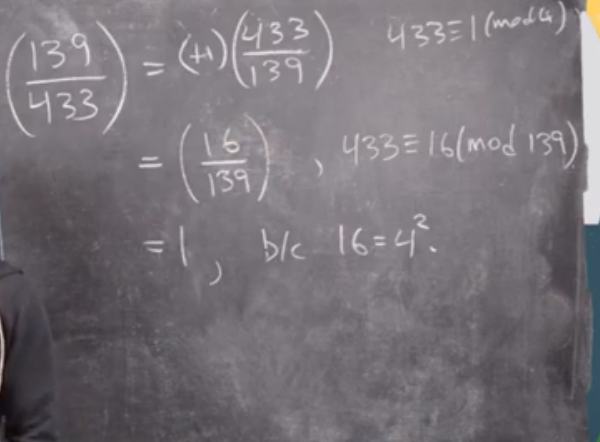 (139/433) = (+1)(433/139) 433≡1(mod 4)
= (16/139), 433≡16(mod 139)
= 1, b/c 16=4².